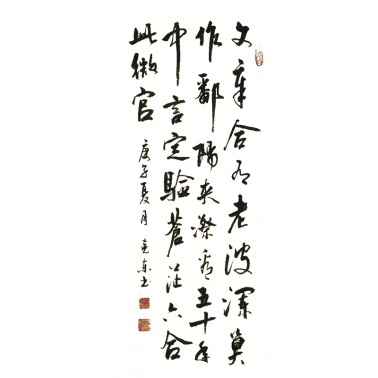 文章合有老波瀾莫
作鄱陽夾漈看五十年
中言定驗蒼茫六合
此微官
庚子夏月 東书